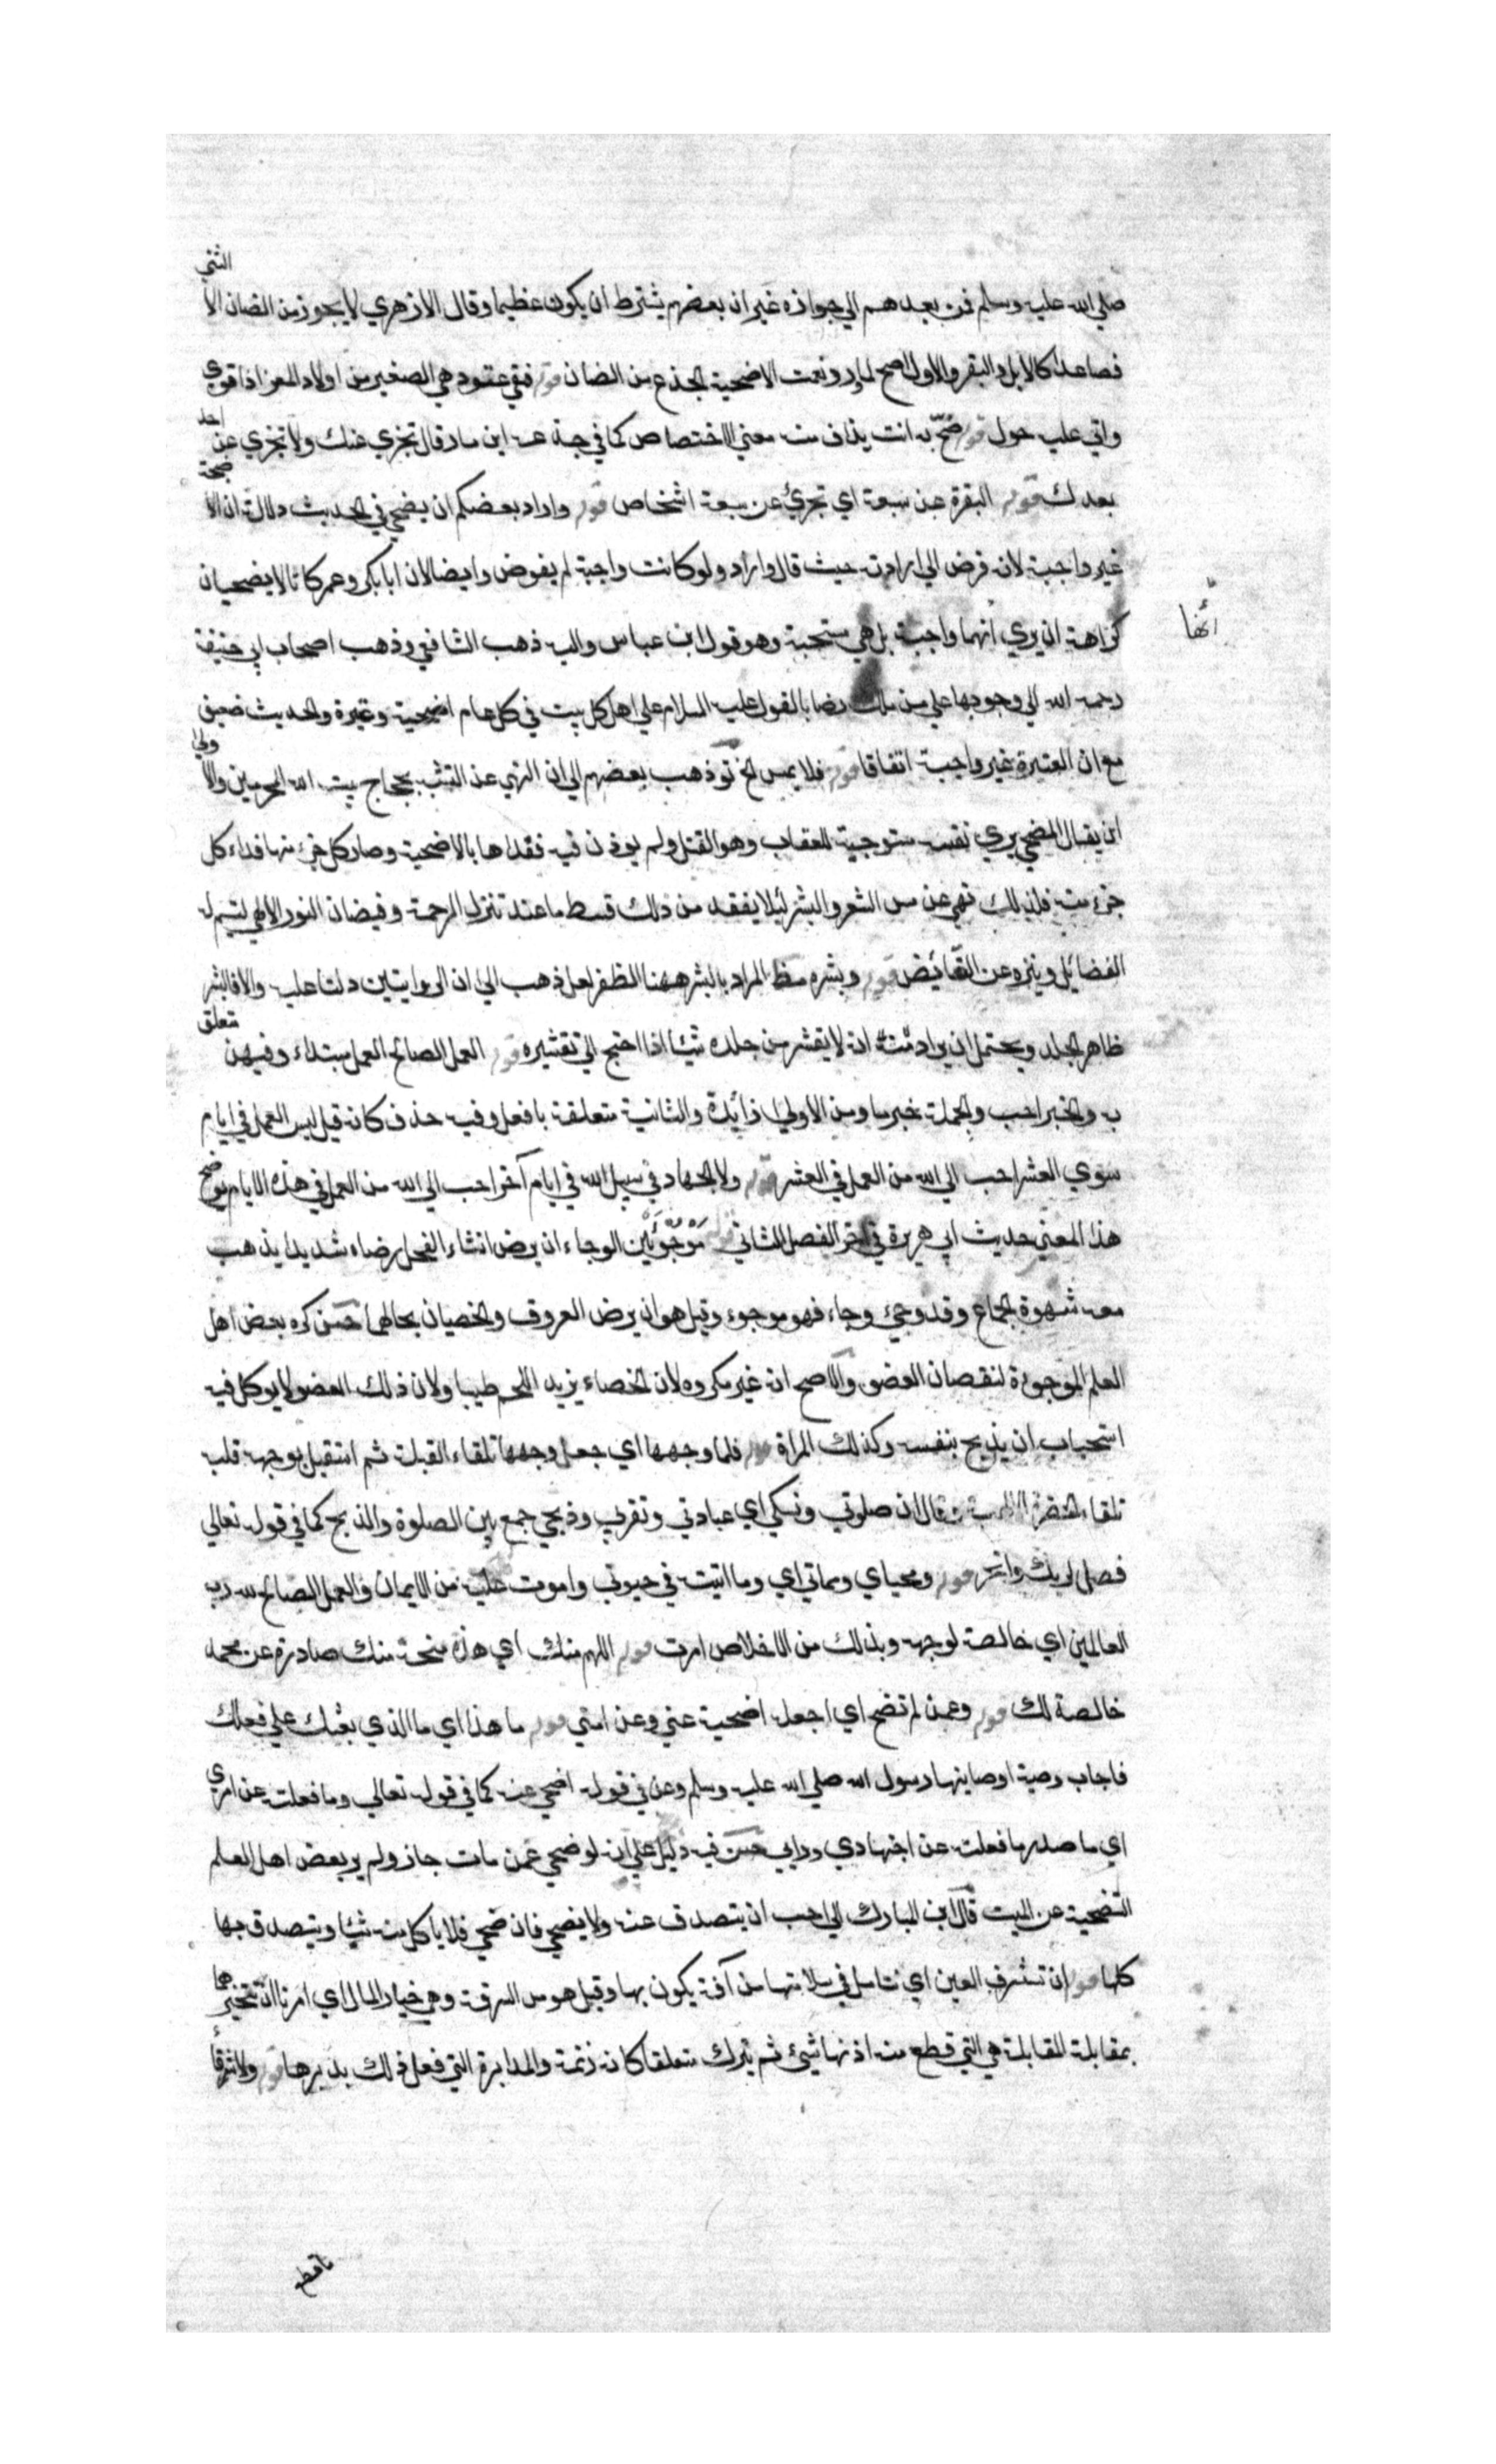 صلي الله عليه وسلم فمن بعدهم الي جوازه غير ان بعضهم يشترط ان يكون عظيما وقال الازهري لا يجوز من الضان الا الثني
فصاعدا كالابل والبقر والاول اصح لما رو نعمت الاضحية الجذع من الضان قوله فبقي عتود هي الصغير من اولاد المعز اذا قوي
واتي عليه حول قوله ضح به انت يذاف منه معني الاختصاص كما في جذعه ابن ماد قال تجزي عنك ولا تجزي عن احد
بعدك قوله البقرة عن سبعة اي تجزئ عن سبعة اشخاص قوله واراد بعضكم ان يضحي في الحديث دلالة ان الاضحية
غير واجبة لانه فرض الي ارادته حيث قال واراد ولو كانت واجبة لم يفوض وايضا لان ابا بكر وعمر كانا لا يضحيان
كراهة ان يري انها واجبة بل هي مستحبة وهو قول ابن عباس واليه ذهب الشافعي وذهب اصحاب ابي حنيفة
أنها
رحمه الله الي وجوبها علي من ملك نصابا لقوله عليه السلام علي اهل كل بيت في كل عام اضحية وعتيرة والحديث ضعيف
مع ان العتيرة غير واجبة اتفاقا قوله فلا يمس الخ تو ذهب بعضهم الي ان النهي عن التشبه بحجاج بيت الله المحرمين والاولي
ان يقال المضحي يري نفسه مستوجبة للعقاب وهو القتل ولم يوذن فيه ففداها بالاضحية وصار كل جزء منها فداء كل
جزء منه فلذلك نهي عن مس الشعر والبشر لئلا يفقد من ذلك قسط ما عند تنزل الرحمة وفيضان النور الالهي ليتم له
الفضائل وينزه عن النقائص قوله وبشره مظ المراد بالبشر ههنا الظفر لعله ذهب الي ان الروايتين دلتا عليه والا فالبشر
ظاهر الجلد ويحتمل ان يراد منه ان لا يقشر من جلده شيئا اذا احتج الي تقشيره قوله العمل الصالح العمل مبتداء وفيهن متعلق
به والخبر احب والجملة خبر ما ومن الاولي زائدة والثانية متعلقة بافعل وفيه حذف كانه قيل ليس العمل في ايام
سوي العشر احب الي الله من العمل في العشر قوله ولا الجهاد في سبيل الله في ايام آخر احب الي الله من العمل في هذه الايام يوضح
هذا المعني حديث ابي هريرة في آخر الفصل الثاني قوله مَوْجُوْئَيْن الوجاء ان يرض انثاء الفحل رضاء شديدا يذهب
معه شهوة الجماع وقد وجئ وجاء فهو موجوء وقيل هو ان يرض العروق والخصيان بحالهما حسن كره بعض اهل
العلم الموجوءة لنقصان العضو والاصح انه غير مكروه لان الخصاء يزيد اللحم طيبا ولان ذلك العضو لا يوكل فيه
استحباب ان يذبح بنفسه وكذلك المراة قوله فلما وجهها اي جعل وجهها تلقاء القبلة ثم استقبل بوجهه قلبه
تلقاء الحضرة قال ان صلوتي ونسكي اي عبادتي وتقربي وذبحي جمع بين الصلوة والذبح كما في قوله تعالي
فصل لربك وانحر قوله ومحياي ومماتي اي وما اتيت في حيوتي واموت عليه من الايمان والعمل الصالح لله رب
العالمين اي خالصة لوجهه وبذلك من الاخلاص امرت قوله اللهم منك اي هذه منحة منك صادرة عن محمد
خالصة لك قوله وعمن لم تضح اي اجعله اضحية عني وعن امتي قوله ما هذا اي ما الذي بعثك علي فعلك
فاجاب وصية اوصانيها رسول الله صلي الله عليه وسلم وعن في قوله اضحي عنه كما في قوله تعالي وما فعلته عن امري
اي ما صدر ما فعلته عن اجتهادي ورايي حسن فيه دليل علي انه لو ضحي عمن مات جاز ولم ير بعض اهل العلم
التضحية عن الميت قال ابن المبارك الي احب ان يتصدق عنه ولا يضحي فان ضحي فلا ياكل منه شيئا ويتصدق بها
كلها قوله ان تستشرف العين اي نتامل في سلامتها من آفة يكون بها وقيل هو من الشرفة وهي خيار المال اي امرنا ان نتخيرهما
بمقابلة المقابلة هي التي قطع منه اذنها شيئ ثم يترك متعلقا كانه زنمة والمدابرة التي فعل ذلك بدبرها قوله ولا شرقاء
ناقطع